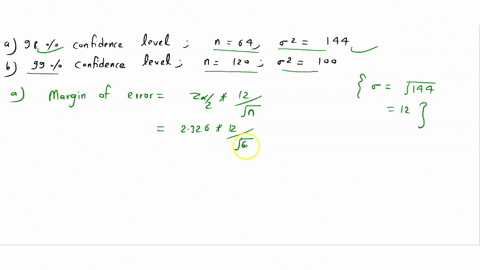 a) 98 % confidence level ; n = 64 ; σ² = 144
b) 99 % confidence level ; n = 120 ; σ² = 100
a) Margin of error = Zα/2 * 12/√n
{ σ = √144
= 2.326 * 12/√6
= 12 }